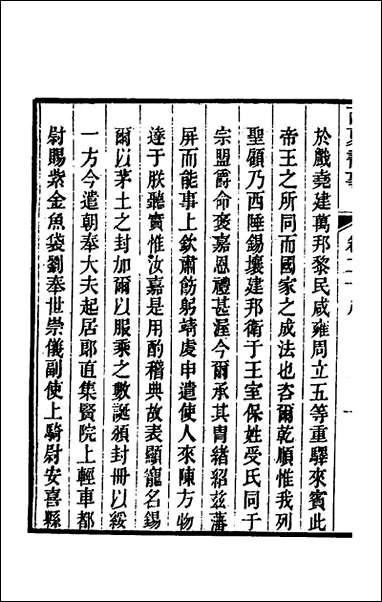 於戲堯建萬邦黎民咸雍周立五等重驛來賓此
帝王之所同而國家之成法也咨爾乾順惟我列
聖顧乃西陲錫壤建邦衛于王室保姓受氏同于
宗盟爵命褒嘉恩禮甚渥今爾承其胄緒紹茲藩
屏而能事上欽肅飭躬靖虔申遣使人來陳方物
達于朕聽實惟汝嘉是用酌稽典故表顯寵名錫
爾以茅土之封加爾以服乘之數誕頒封冊以綏
一方今遣朝奉大夫起居郎直集賢院上輕車都
尉賜紫金魚袋劉奉世崇儀副使上騎尉安喜縣